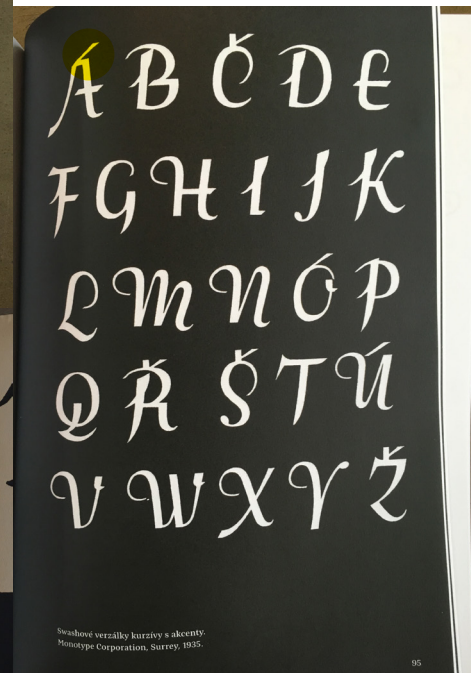 Á B Č D E
F G H I J K
L M N Ó P
Q Ř Š T Ú
V W X Y Ž
Swashové verzálky kurzívy s akcenty.
Monotype Corporation, Surrey, 1935.
95